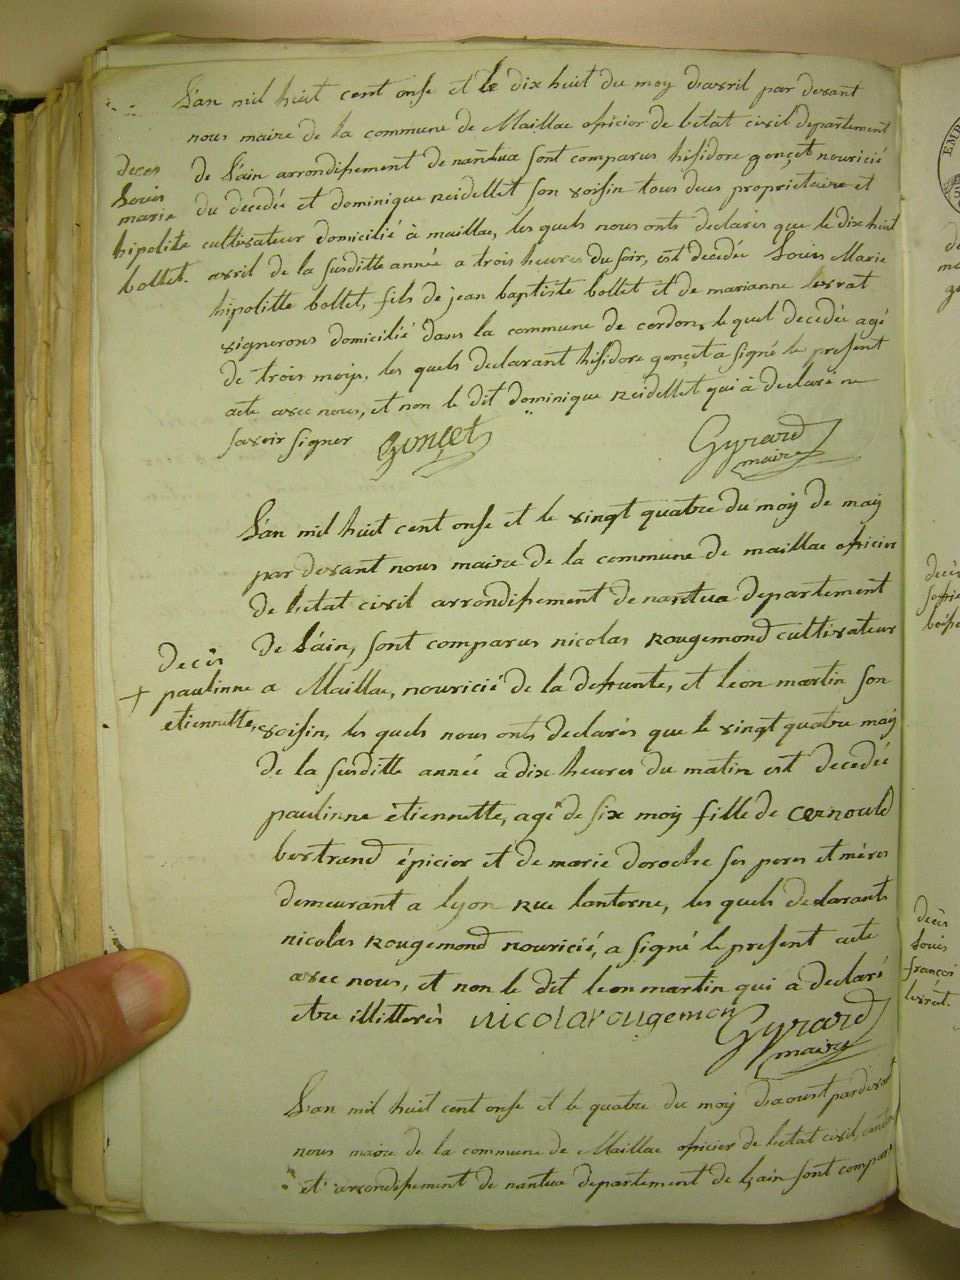 L'an mil huit cent onse et le dix huit du moy d'avril par devant
nous maire de la commune de Maillac oficier de l'etat civil departement
deces de L'ain arrondissement de nantua sont comparus hisidore gonçet nouricié
Louis marie du decedée et dominique Reidellet son voisin tous deus proprietaire et
hipolite cultivateur domicilié à maillac, les quels nous onts declarés que le dix huit
bollet. avril de la susditte année a trois heures du soir, est decedée Louis Marie
hipolitte bollet, fils de jean baptiste bollet et de marianne levrat
vignerons domicilié dans la commune de cordon, le quel decedée agé
de trois mois, les quels declarant hisidore gonçet a signé le present
acte avec nous, et non le dit dominique Reidellet qui à declaré ne
savoir signer Gonçet Gyrard
maire
L'an mil huit cent onse et le vingt quatre du moÿ de maÿ
par devant nous maire de la commune de maillac oficier
de l'etat civil arrondissement de nantua departement
de L'ain, sont comparus nicolas Rougemond cultivateur
decés
+ paulinne a Maillac, nouricié de la defunte, et leon martin son
etiennette, voisin, les quels nous onts declarés que le vingt quatre maÿ
de la susditte année a dix heures du matin est decedée
paulinne etiennette, agé de six moÿ fille de cernould
bertrand épicier et de marie deroche ses peres et méres
demeurant a lyon Rue lanterne, les quels declarants
nicolas Rougemond nouricié, a signé le present acte
avec nous, et non le dit leon martin qui a declaré
etre illitterés nicolarougemon Gyrard
maire
L'an mil huit cent onse et le quatre du moÿ d'aoust par devant
nous maire de la commune de Maillac oficier de l'etat civil,
et arrondissement de nantua departement de L'ain sont compar
decés
Louis
françois
levrat.